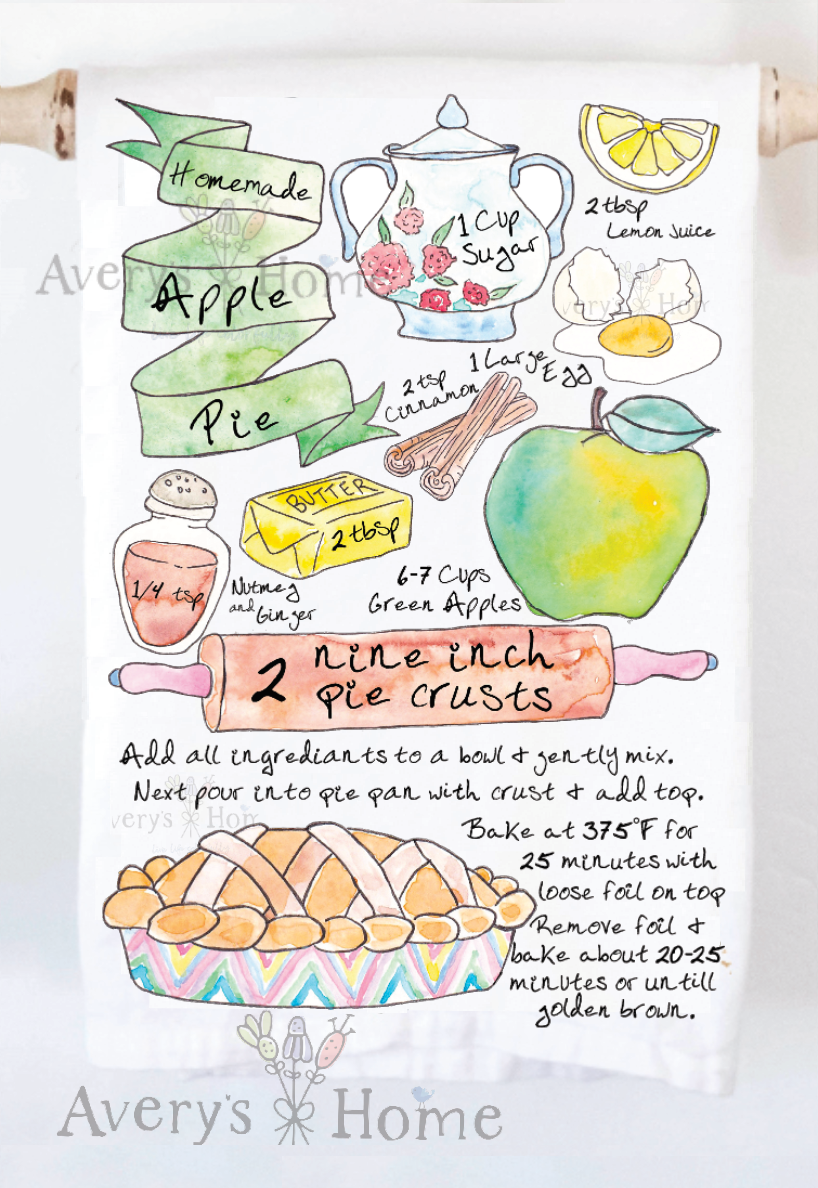 Homemade
Apple
Pie
1 Cup
Sugar
2 tbsp
Lemon Juice
1 Large
Egg
2 tsp
Cinnamon
BUTTER
2 tbsp
1/4 tsp
Nutmeg
and Ginger
6-7 Cups
Green Apples
2 nine inch
pie crusts
Add all ingrediants to a bowl & gently mix.
Next pour into pie pan with crust & add top.
Bake at 375°F for
25 minutes with
loose foil on top
Remove foil &
bake about 20-25
minutes or untill
golden brown.
Avery's Home
Avery's Home
Avery's Home
Avery's Home